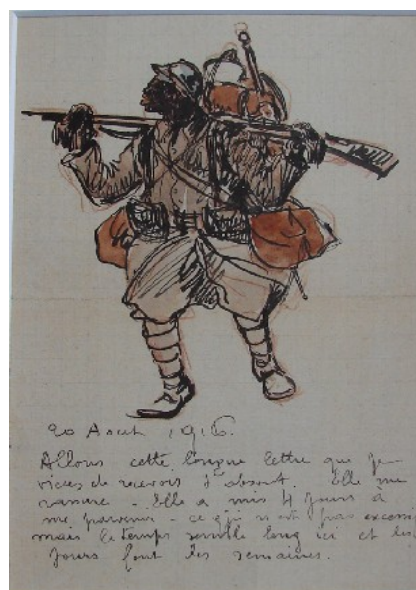 20 Aout 1916.
Allons cette longue lettre que je
viens de recevoir d'absent. Elle me
rassure - Elle a mis 4 jours à
me parvenir - ce qui n'est pas excessi
mais le temps semble long ici et les
jours font les semaines.